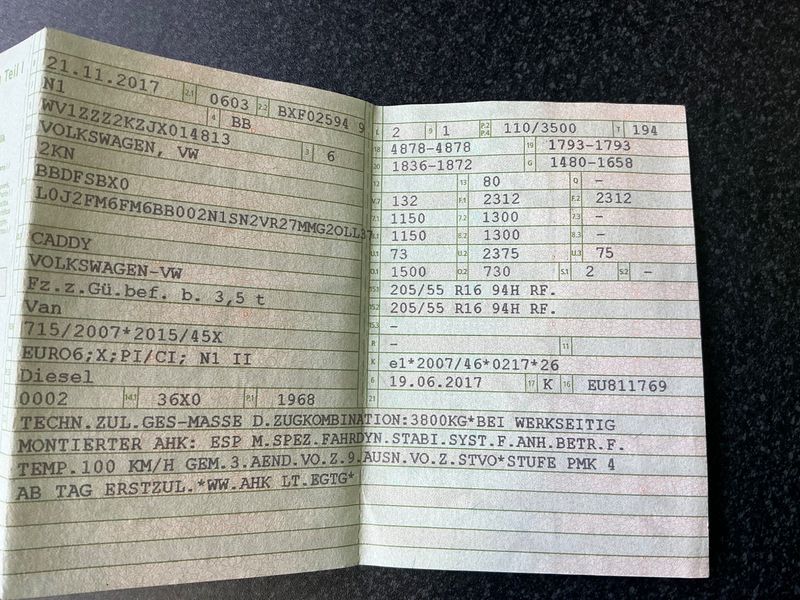 Teil I
21.11.2017 2.1 0603 2.2 BXF02594 9
N1 4 BB
WV1ZZZ2KZJX014813 3 6
VOLKSWAGEN, VW
2KN
BBDFSBX0
L0J2FM6FM6BB002N1SN2VR27MMG2OLL37
CADDY
VOLKSWAGEN-VW
Fz.z.Gü.bef. b. 3,5 t
Van
715/2007*2015/45X
EURO6;X;PI/CI; N1 II
Diesel
0002 14.1 36X0 P.1 1968
L 2 9 1 P.2 P.4 110/3500 T 194
18 4878-4878 19 1793-1793
20 1836-1872 G 1480-1658
12 13 80 Q -
V.7 132 F.1 2312 F.2 2312
7.1 1150 7.2 1300 7.3 -
8.1 1150 8.2 1300 8.3 -
U.1 73 U.2 2375 U.3 75
O.1 1500 O.2 730 S.1 2 S.2 -
15.1 205/55 R16 94H RF.
15.2 205/55 R16 94H RF.
15.3 -
R - 11
K e1*2007/46*0217*26
6 19.06.2017 17 K 16 EU811769
21
TECHN.ZUL.GES-MASSE D.ZUGKOMBINATION:3800KG*BEI WERKSEITIG
MONTIERTER AHK: ESP M.SPEZ.FAHRDYN.STABI.SYST.F.ANH.BETR.F.
TEMP.100 KM/H GEM.3.AEND.VO.Z.9.AUSN.VO.Z.STVO*STUFE PMK 4
AB TAG ERSTZUL.*WW.AHK LT.EGTG*